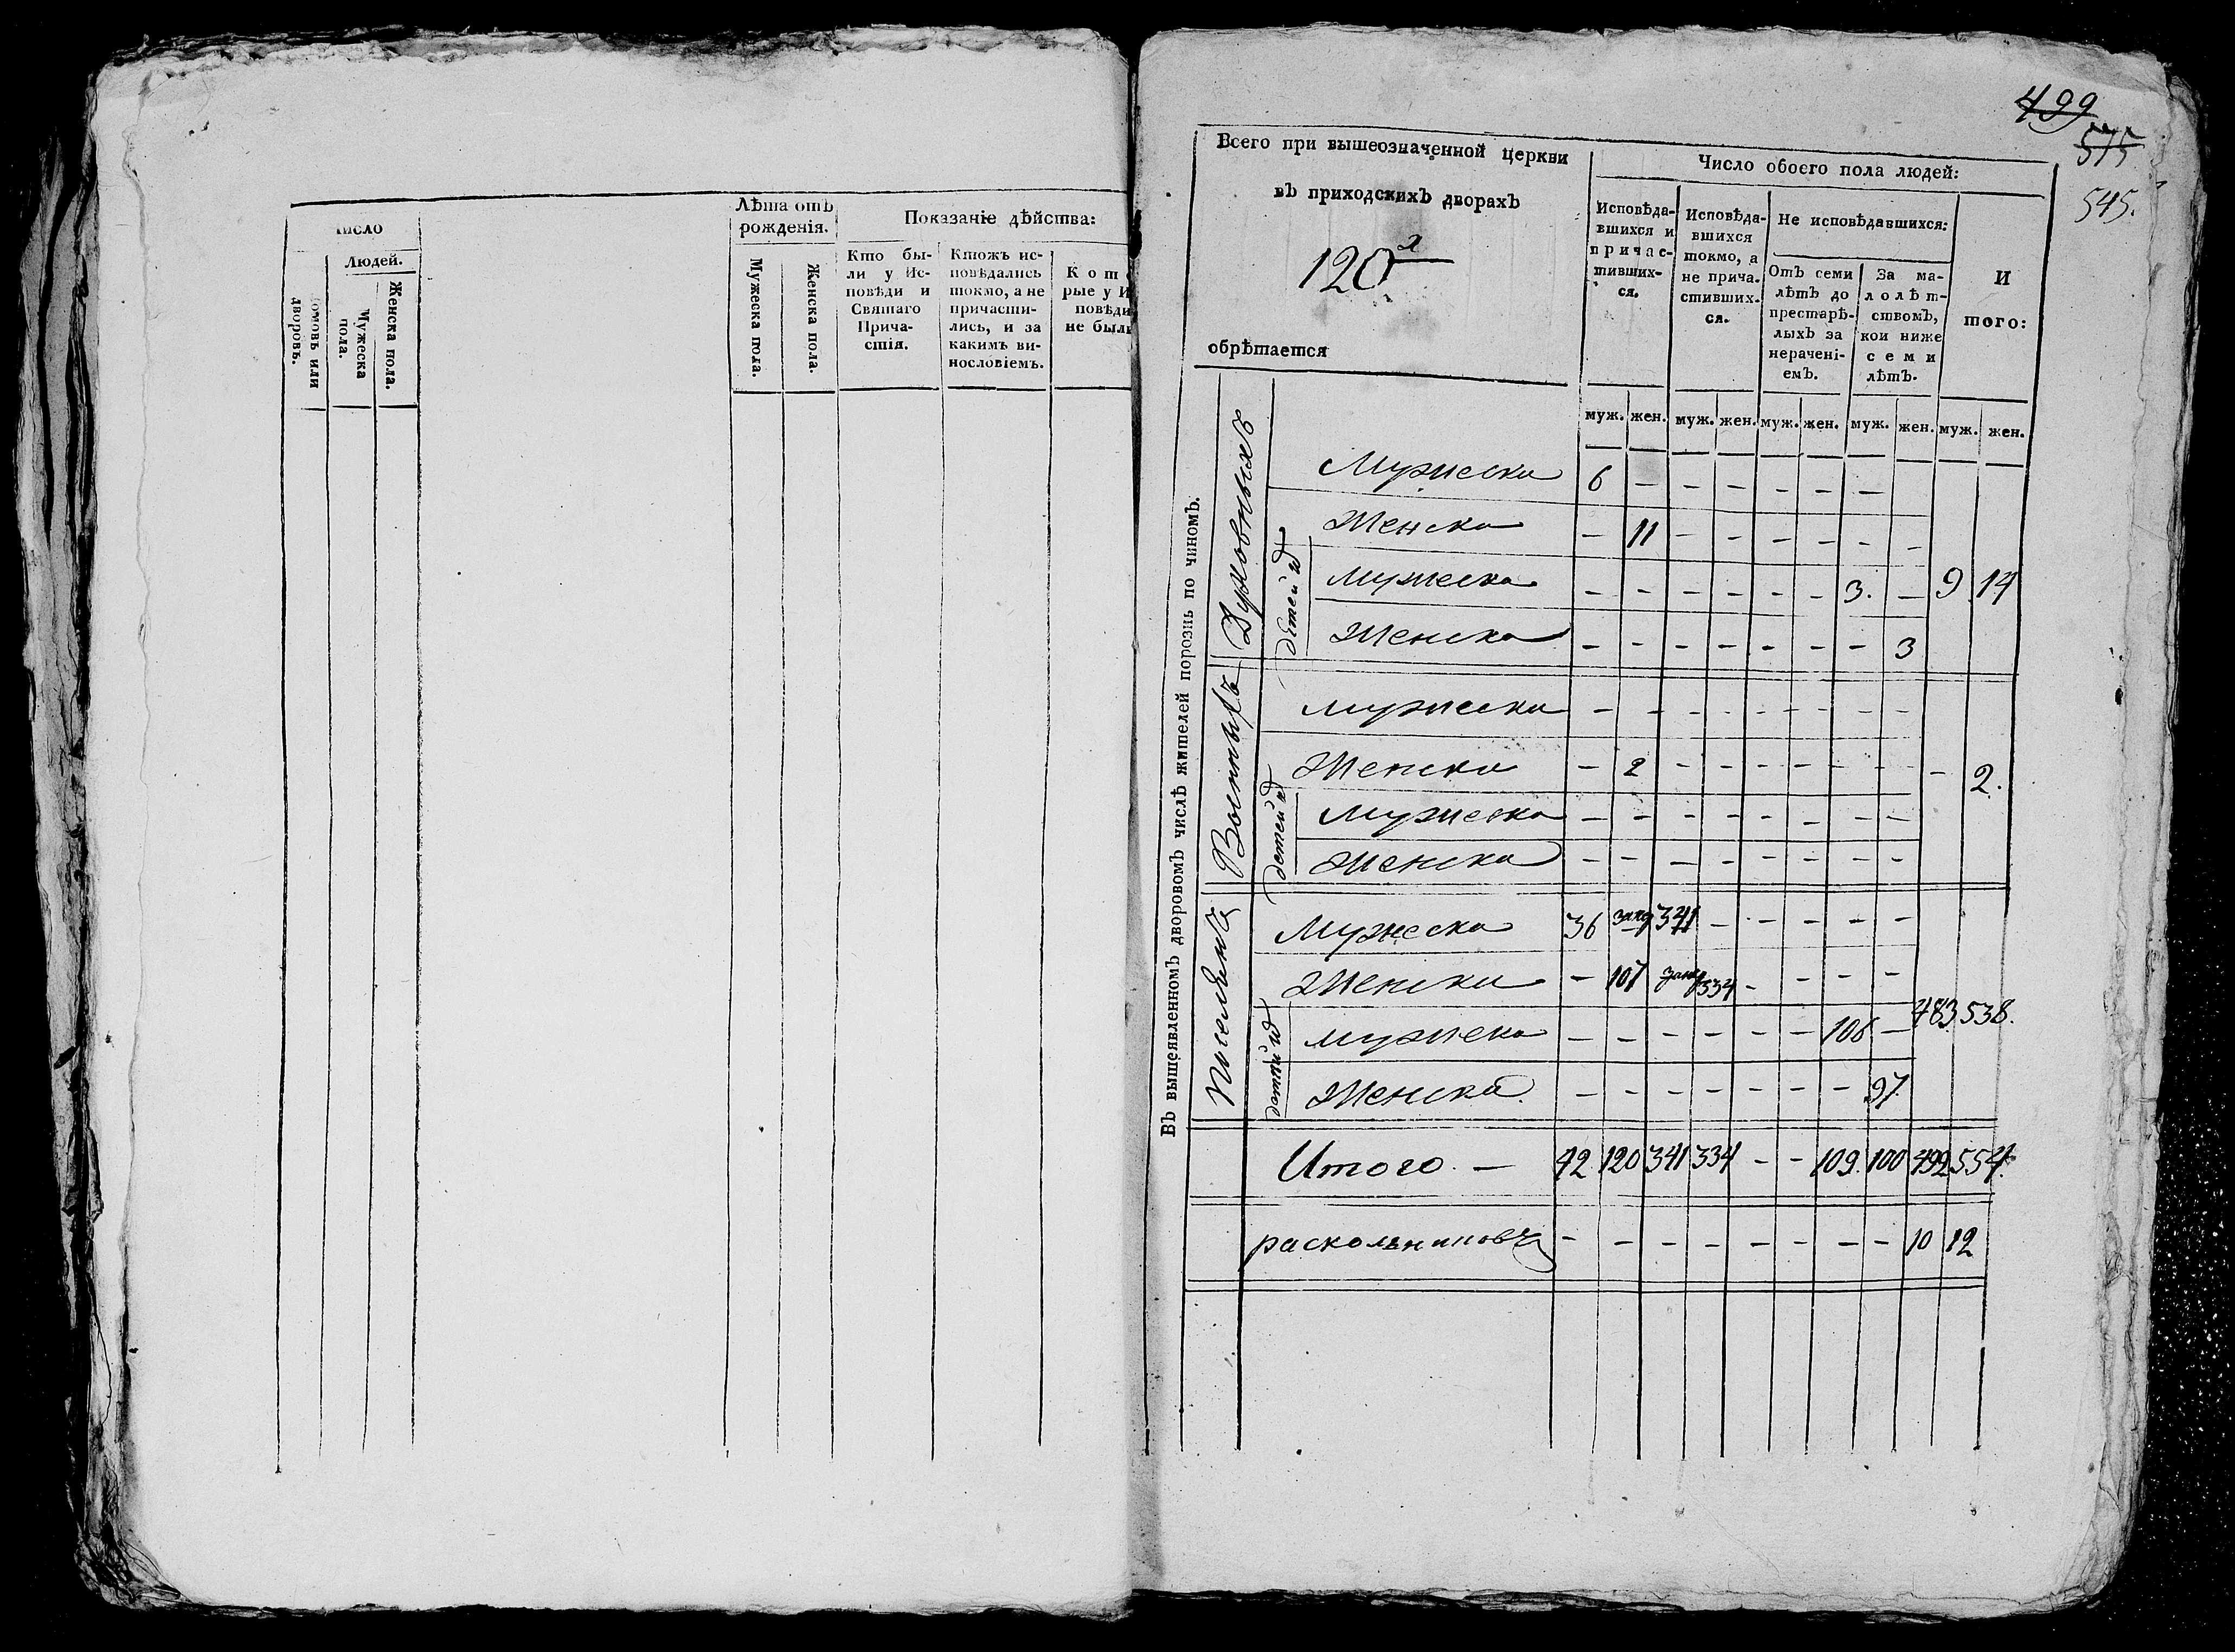 число
Людей.
домовъ или дворовъ.
Мужеска пола.
Женска пола.
Лѣта отъ рожденія.
Мужеска пола.
Женска пола.
Показаніе дѣйства:
Кто бы-
ли у Ис-
повѣди и
Святаго
Прича-
стія.
Ктожъ ис-
повѣдались
токмо, а не
причасти-
лись, и за
какимъ ви-
нословіемъ.
Кото
рые у И
повѣди
не были
499
575
545.
Всего при вышеозначенной церкви
въ приходскихъ дворахъ
120
обрѣтается
Число обоего пола людей:
Исповѣда-
вшихся и
причас-
тивших-
ся.
Исповѣда-
вшихся
токмо, а
не прича-
стивших-
ся.
Не исповѣдавшихся:
Отъ семи
лѣтъ до
престарѣ-
лыхъ за
нерачені-
емъ.
За ма-
лолѣт-
ствомъ,
кои ниже
семи
лѣтъ.
И
того:
муж. жен. муж. жен. муж. жен. муж. жен. муж. жен.
Въ вышеявленномъ дворовомъ числѣ жителей порознь по чиномъ.
Духовныхъ
Мужеска 6 – – – – – –
Женска – 11 – – – – – –
детей ид
Мужеска – – – – – – 3. – 9 14
Женска – – – – – – – 3
Военныхъ
Мужеска – – – – – – – –
Женска – 2 – – – – – – – 2.
детей ид
Мужеска – – – – – – – –
Женска – – – – – – – –
Поселянъ
Мужеска 36 – 341 – – – – –
Женска – 107 334 – – – –
детей ид
Мужеска – – – – – – 106 – 483 538.
Женска – – – – – – – 97.
Итого – 42 120 341 334 – – 109. 100 492 554.
раскольниковъ – – – – – – – – 10 12